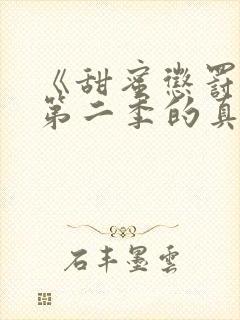 《甜蜜惩罚
第二季的真
石丰墨雲